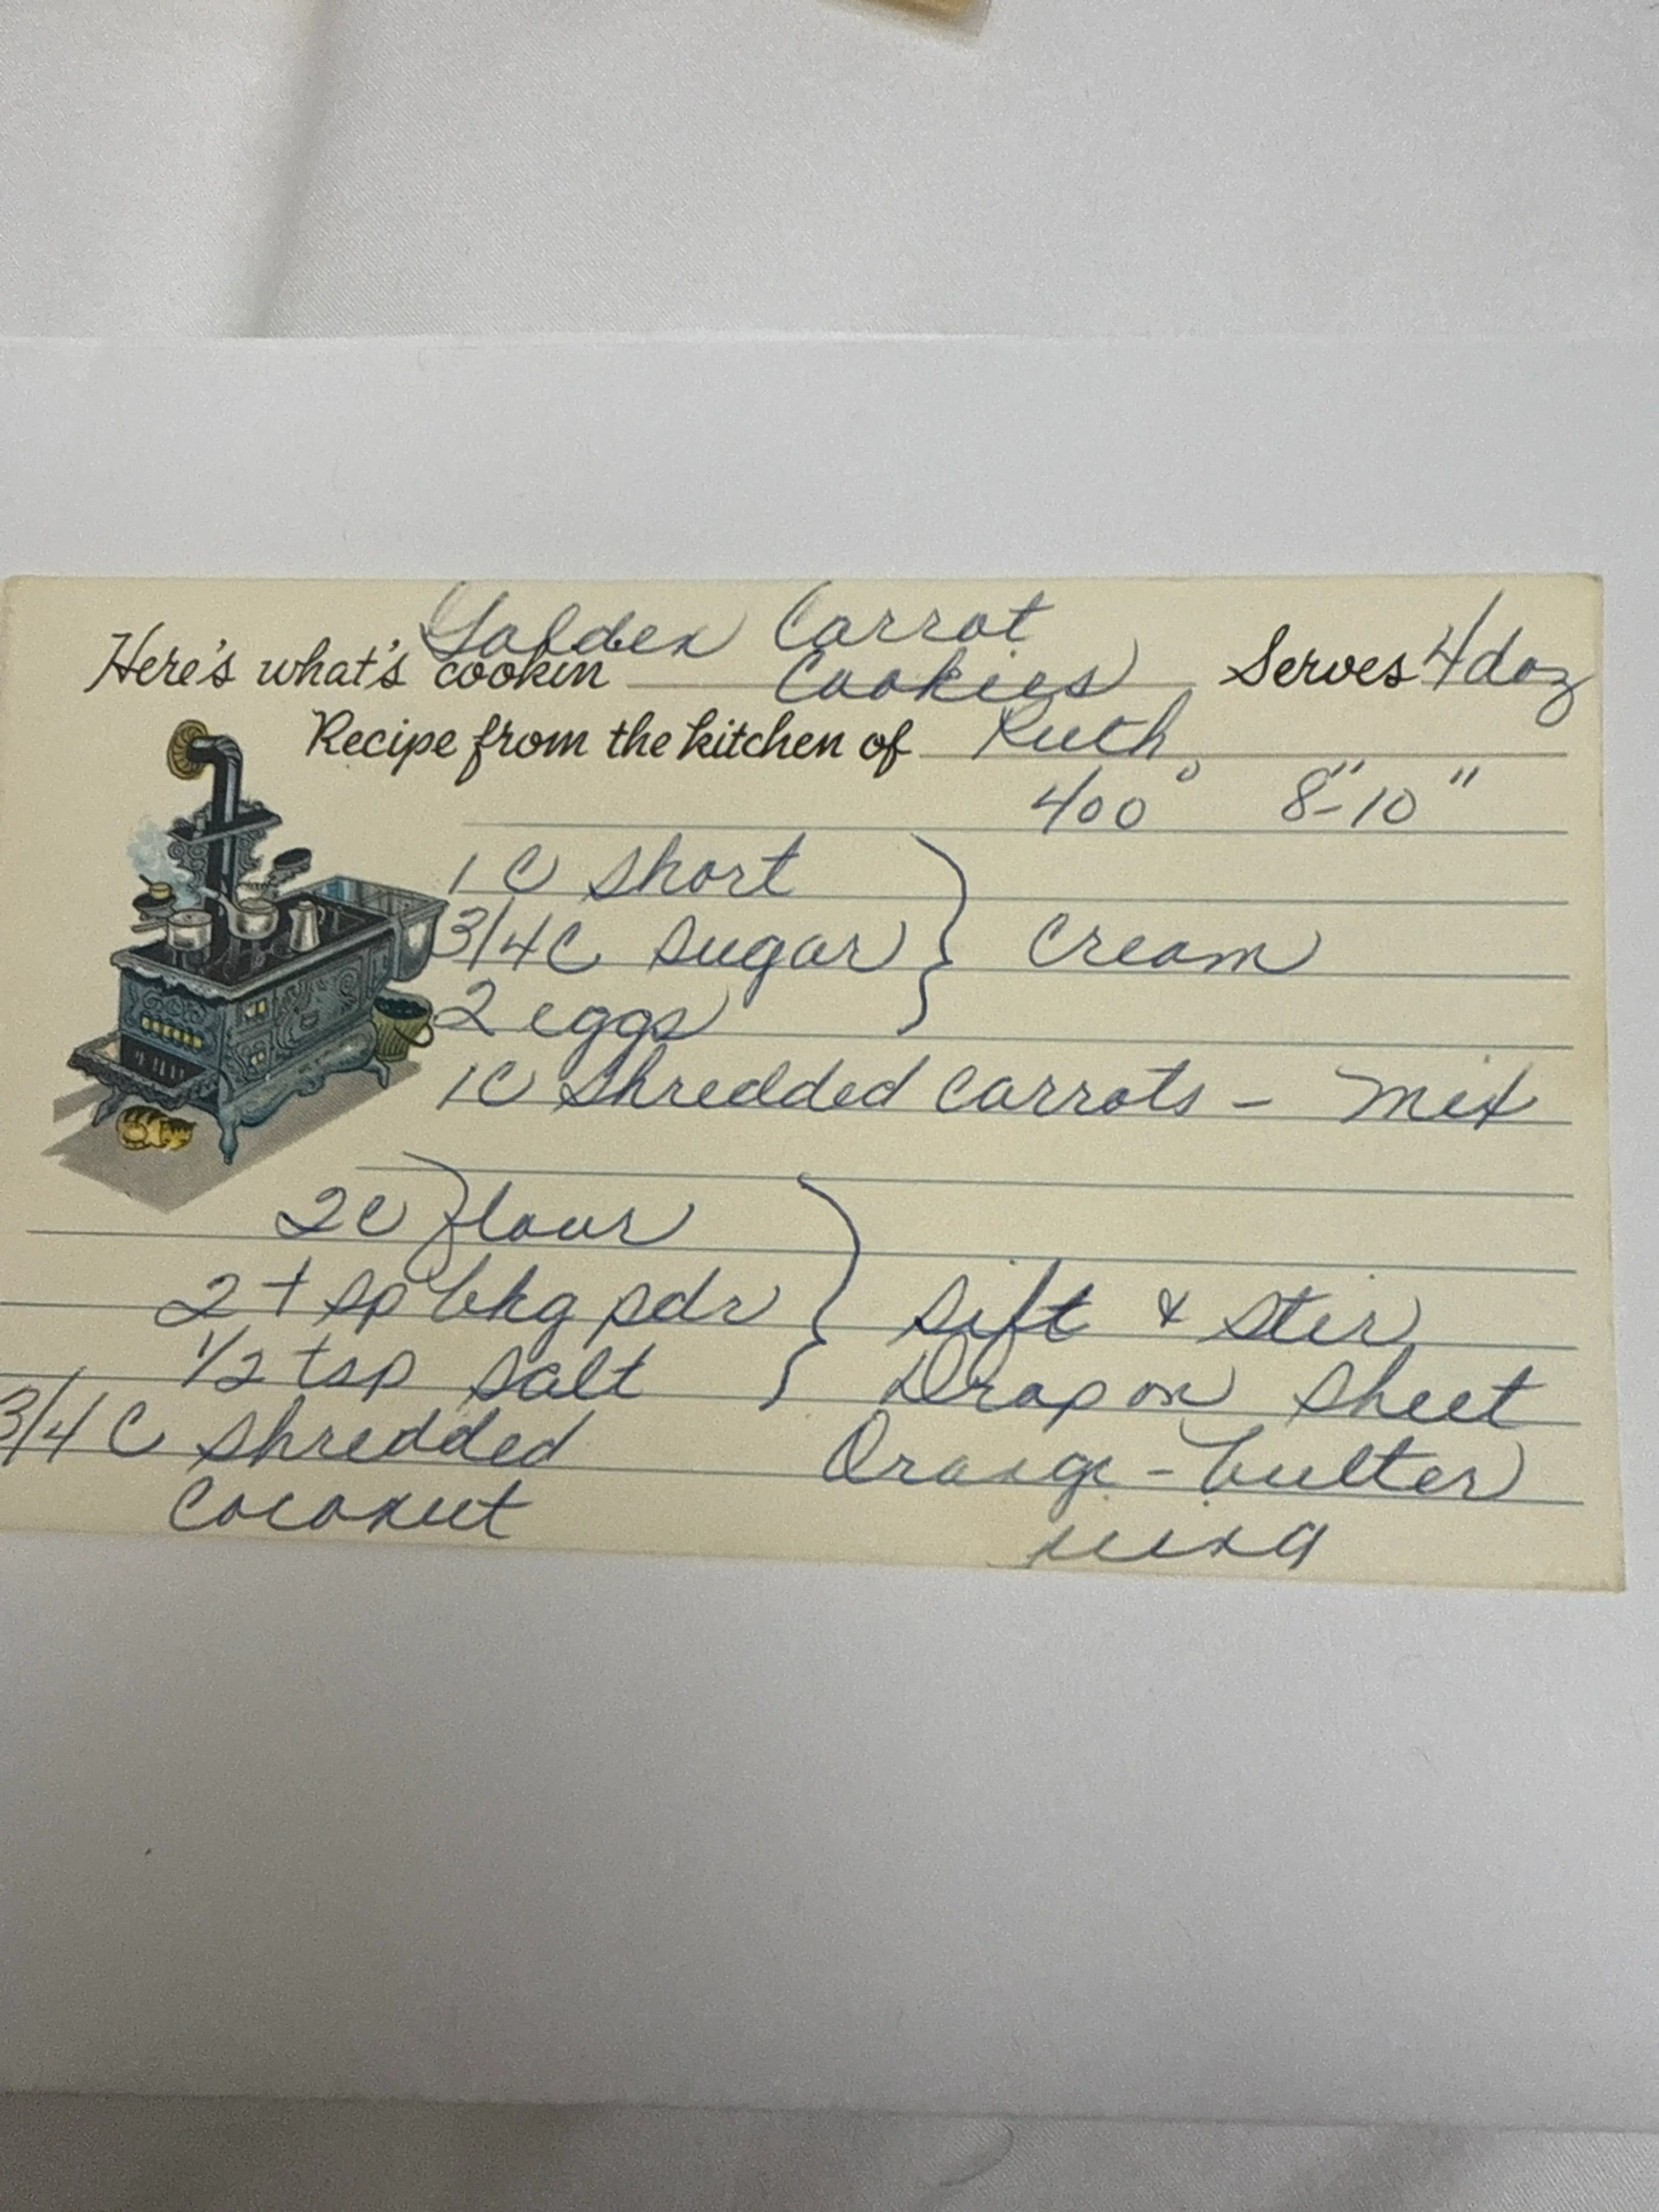 Golden Carrot
Here's what's cookin Cookies Serves 4 doz
Recipe from the kitchen of Ruth
400° 8"-10"
1 C short } Cream
3/4 C sugar
2 eggs
1C shredded carrots - mix
2C flour } Sift & stir
2 tsp bkg pdr
1/2 tsp salt Drop on sheet
3/4 C shredded Orange-butter
Coconut